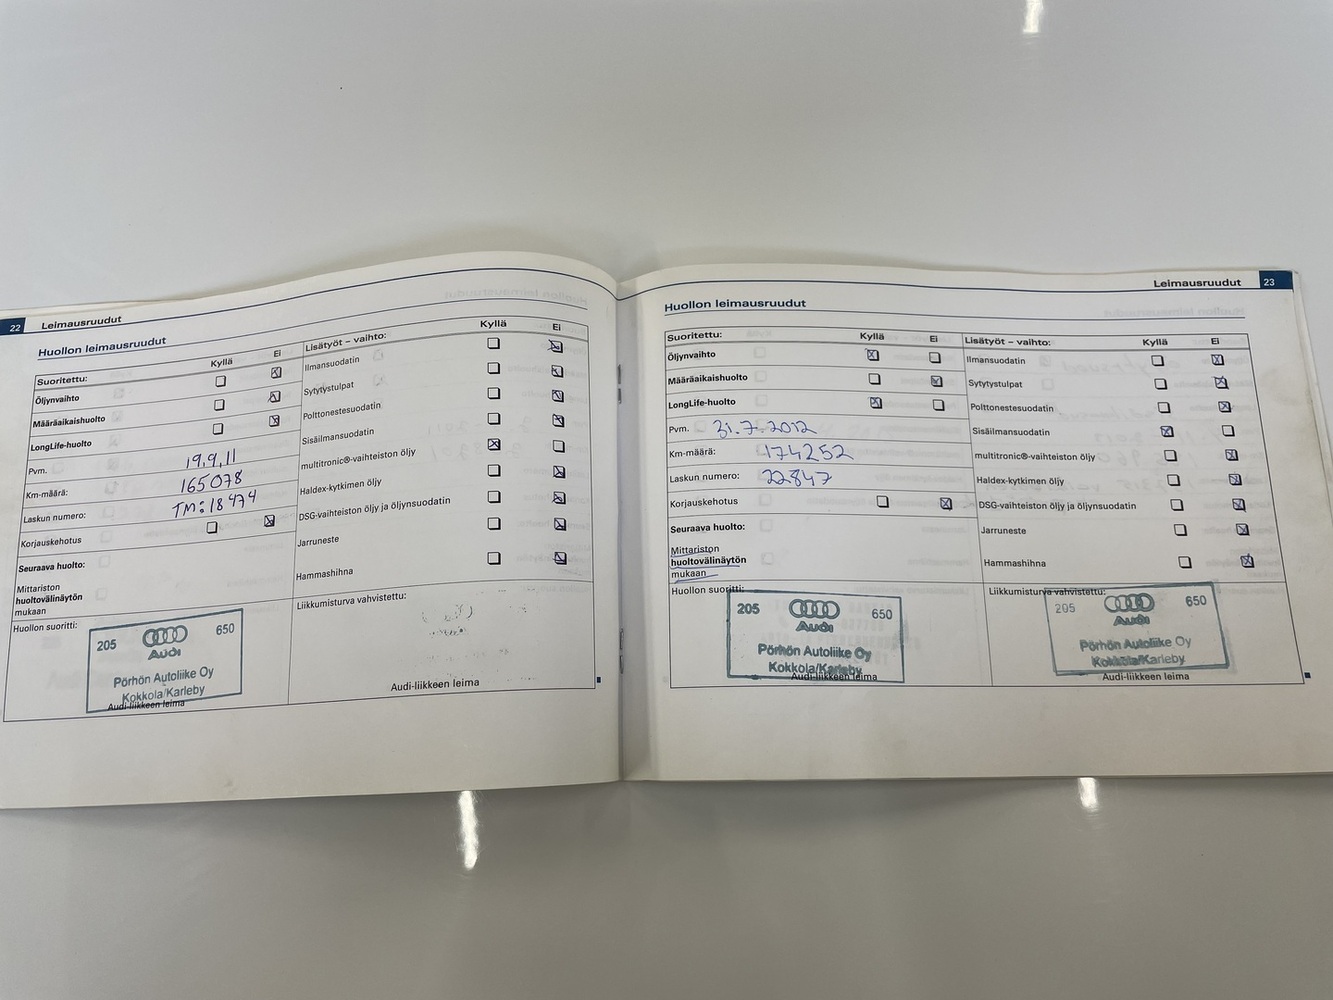 22 Leimausruudut
Huollon leimausruudut
Suoritettu: Kyllä Ei
Öljynvaihto ☐ ☒
Määräaikaishuolto ☐ ☒
LongLife-huolto ☐ ☒
Pvm. 19.9.11
Km-määrä: 165078
Laskun numero: TM:18474
Korjauskehotus ☐ ☒
Seuraava huolto:
Mittariston
huoltovälinäytön
mukaan
Huollon suoritti:
205 650
Audi
Pörhön Autoliike Oy
Kokkola/Karleby
Audi-liikkeen leima
Lisätyöt – vaihto: Kyllä Ei
Ilmansuodatin ☐ ☒
Sytytystulpat ☐ ☒
Polttonestesuodatin ☐ ☒
Sisäilmansuodatin ☐ ☒
multitronic®-vaihteiston öljy ☒ ☐
Haldex-kytkimen öljy ☐ ☒
DSG-vaihteiston öljy ja öljynsuodatin ☐ ☒
Jarruneste ☐ ☒
Hammashihna ☐ ☒
Liikkumisturva vahvistettu:
Audi-liikkeen leima
Leimausruudut 23
Huollon leimausruudut
Suoritettu: Kyllä Ei
Öljynvaihto ☒ ☐
Määräaikaishuolto ☐ ☒
LongLife-huolto ☒ ☐
Pvm. 31.7.2012
Km-määrä: 174252
Laskun numero: 22847
Korjauskehotus ☐ ☒
Seuraava huolto:
Mittariston
huoltovälinäytön
mukaan
Huollon suoritti:
205 650
Audi
Pörhön Autoliike Oy
Kokkola/Karleby
Audi-liikkeen leima
Lisätyöt – vaihto: Kyllä Ei
Ilmansuodatin ☐ ☒
Sytytystulpat ☐ ☒
Polttonestesuodatin ☐ ☒
Sisäilmansuodatin ☒ ☐
multitronic®-vaihteiston öljy ☐ ☒
Haldex-kytkimen öljy ☐ ☒
DSG-vaihteiston öljy ja öljynsuodatin ☐ ☒
Jarruneste ☐ ☒
Hammashihna ☐ ☒
Liikkumisturva vahvistettu:
205 650
Audi
Pörhön Autoliike Oy
Kokkola/Karleby
Audi-liikkeen leima